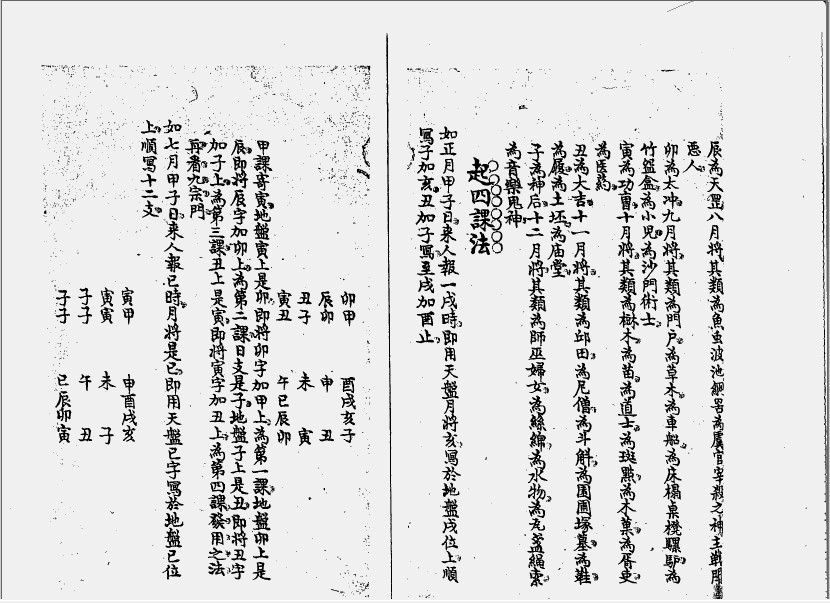 辰為天罡八月將其類為魚虫波池網罟為虞官宰殺之神主戰鬥
惡人
卯為太冲九月將其類為門户為草木為車船為床榻桌櫈騾馿為
竹筐盒為小児為沙門術士
寅為功曹十月將其類為樹木為苗為道士為斑點為木菓為胥吏
為医葯
丑為大吉十一月將其類為邱田為尼僧為斗斛為園圃塚墓為鞋
為履為土坯為庙堂
子為神后十二月將其類為師巫婦女為絲綿為水物為瓦盆繩索
為音樂鬼神
起四課法
如正月甲子日來人報一戌時即用天盤月將亥寫於地盤戌位上順
寫子加亥丑加子寫至戌加酉止
卯甲 酉戌亥子
辰卯 申 丑
丑子 未 寅
寅丑 午巳辰卯
甲課寄寅地盤寅上是卯即將卯字加甲上為第一課地盤卯上是
辰即將辰字加卯上為第二課日支是子地盤子上是丑即將丑字
加子上為第三課丑上是寅即將寅字加丑上為第四課發用之法
再看九宗門
如七月甲子日來人報巳時月將是巳即用天盤巳字寫於地盤巳位
上順寫十二支
寅甲 申酉戌亥
寅寅 未 子
子子 午 丑
子子 巳辰卯寅